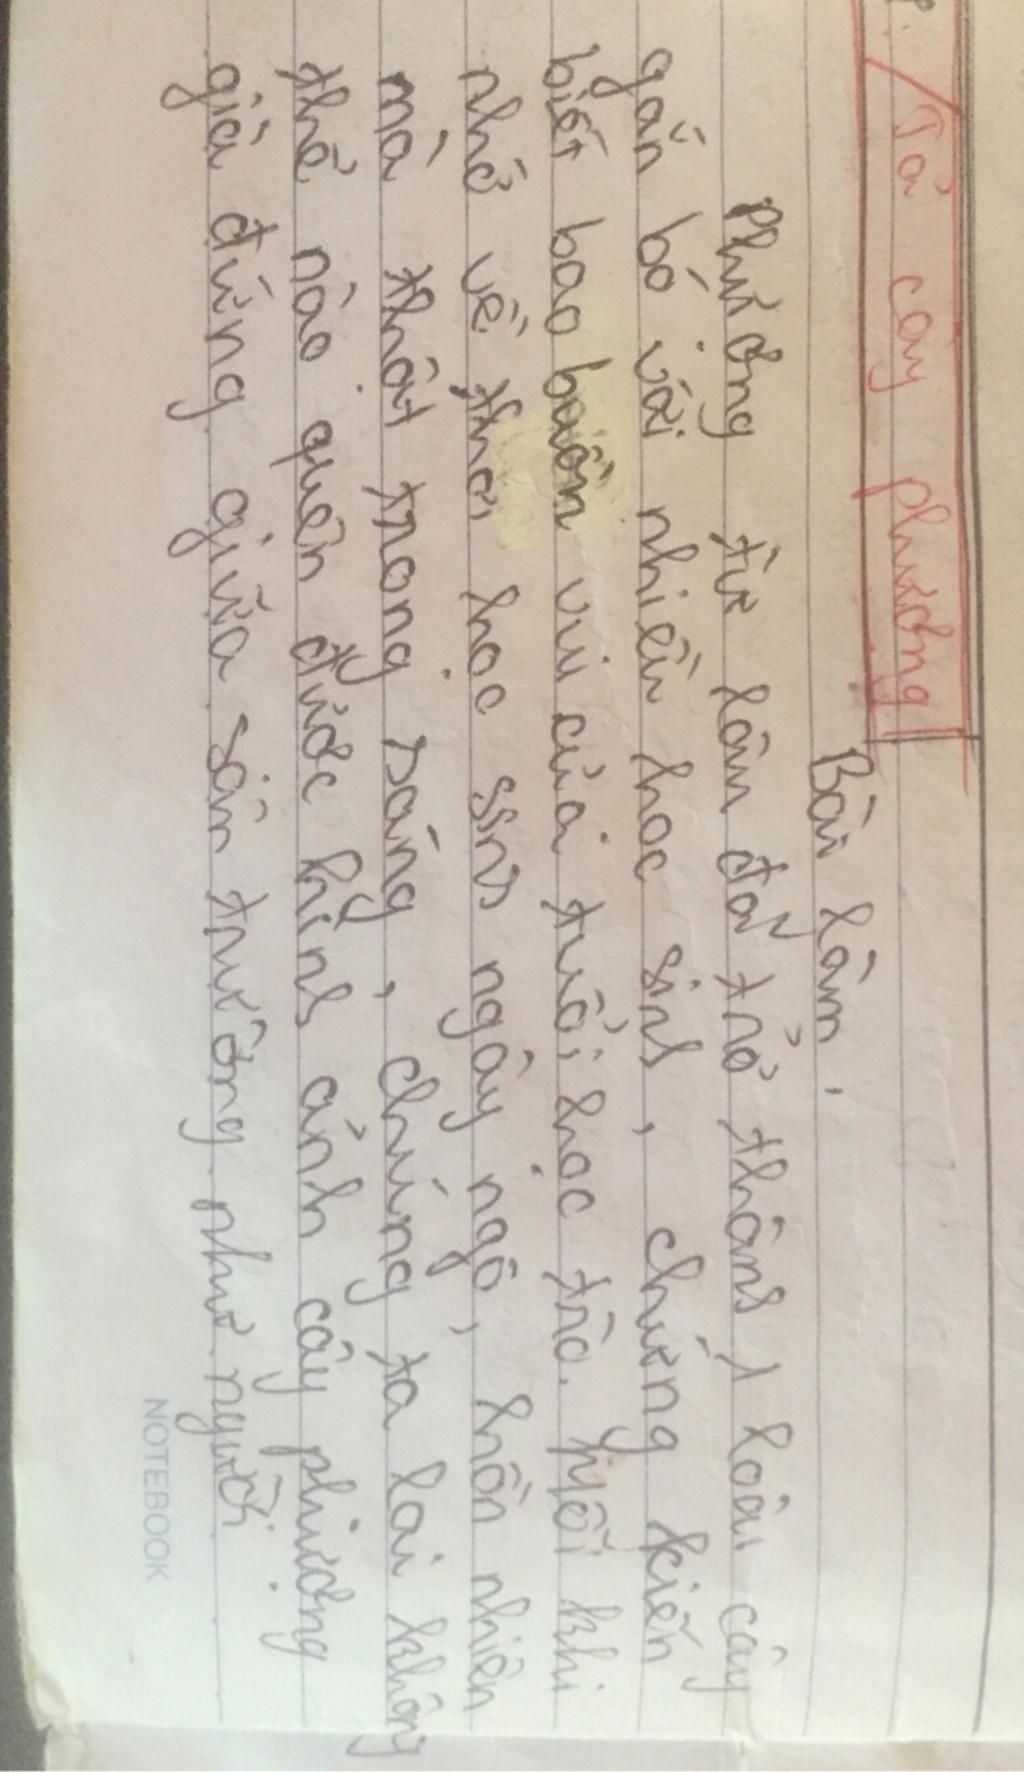 Tả cây phượng
Bài làm.
Phượng từ lâu đã trở thành 1 loài cây
gắn bó với nhiều học sinh, chứng kiến
biết bao buồn vui của tuổi học trò. Mỗi khi
nhớ về thời học sinh ngây ngô, hồn nhiên
mà thật trong sáng, chúng ta lại không
thể nào quên được hình ảnh cây phượng
già đứng giữa sân trường như người
NOTEBOOK